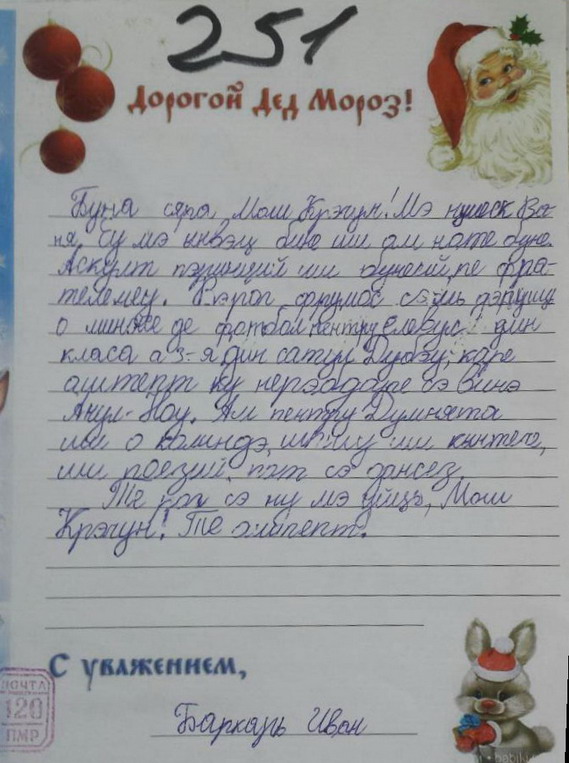 251
Дорогой Дед Мороз!
Буна сяра Мош Крэчун! Мэ нумеск Ва-
ня. Еу мэ ынвэц бине ши ам ноте буне.
Аскулт пэринций ши бунеий, пе фра-
телемеу. Те рог фрумос сэ-мь дэруешь
о минӂе де фотбал пентру елевий дин
класа а 3-я дин сатул Дубэу, каре
аштептт ку нерэбдаре сэ винэ
Анул-Ноу. Ам пентру Думнята
ши о колиндэ, ши ши кынтече,
ши поезий, пот сэ дансез.
Те рог сэ ну мэ уйць, Мош
Крэчун! Те аштепт.
С уважением,
Баркарь Иван
ПОЧТА
120
ПМР